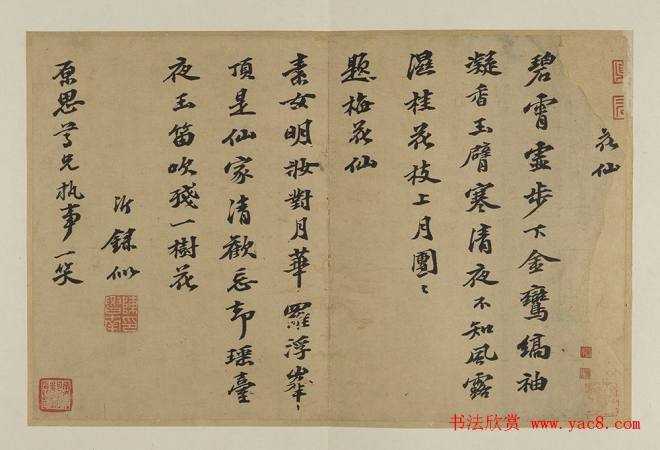 花仙
碧霄虚步下金鸞縞袖
凝香玉臂寒清夜不知風露
濕桂花枝上月團〻
題梅花仙
素女明妝對月華羅浮峯〻
頂是仙家清歡忘却瑤臺
夜玉笛吹殘一樹花
沂錄似
原思尊兄執事一笑
书法欣赏 www.yac8.com